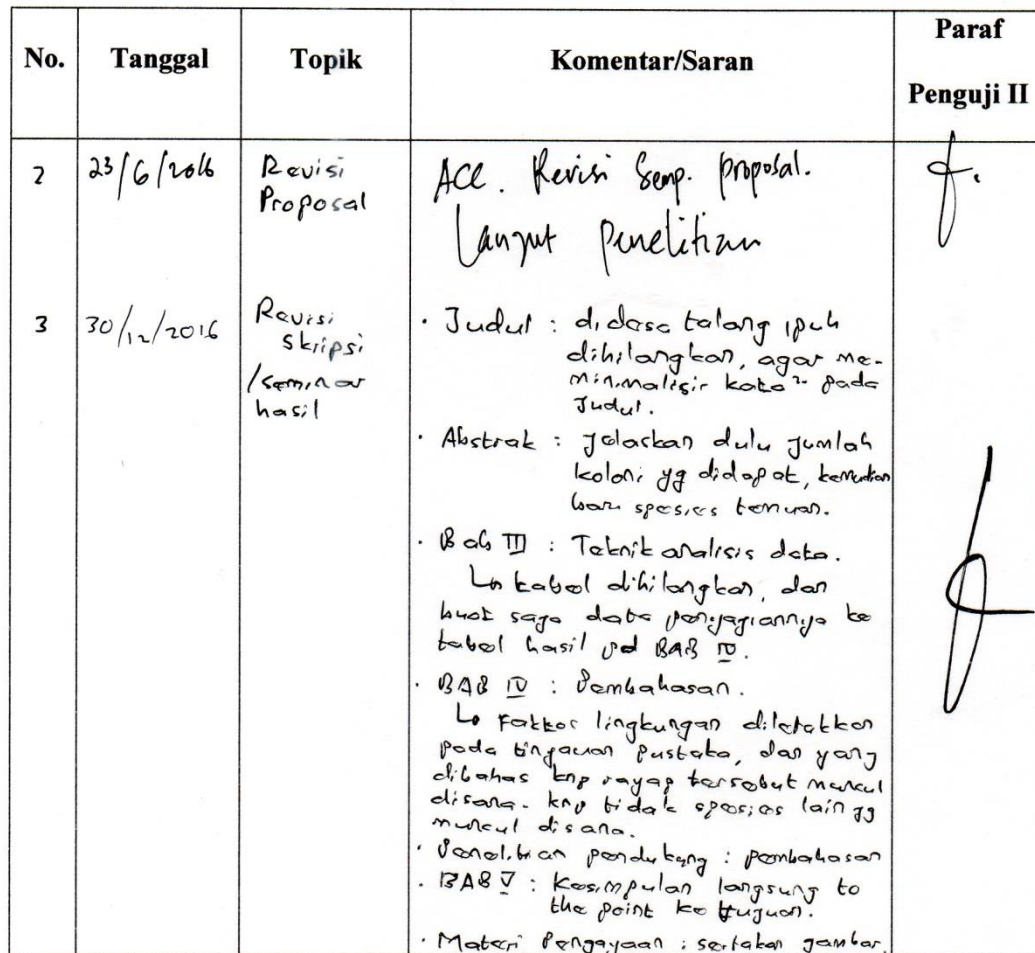 No. Tanggal Topik Komentar/Saran Paraf
Penguji II
2 23/6/2016 Revisi Proposal
ACC. Revisi Semp. proposal.
Lanjut penelitian
3 30/12/2016 Revisi
skripsi
/seminar
hasil
· Judul : didesa talang ipuh
dihilangkan, agar me-
minimalisir kata² pada
Judul.
· Abstrak : Jelaskan dulu jumlah
koloni yg didapat, kemudian
baru spesies temuan.
· Bab III : Teknik analisis data.
↳ tabel dihilangkan, dan
buat saja data penyajiannya ke
tabel hasil pd BAB IV.
· BAB IV : Pembahasan.
↳ Faktor lingkungan diletakkan
pada tinjauan pustaka, dan yang
dibahas knp rayap tersebut muncul
disana. knp tidak spesies lain yg
muncul disana.
· Penelitian pendukung : pembahasan
· BAB V : Kesimpulan langsung to
the point ke tujuan.
· Materi Pengayaan : sertakan gambar.